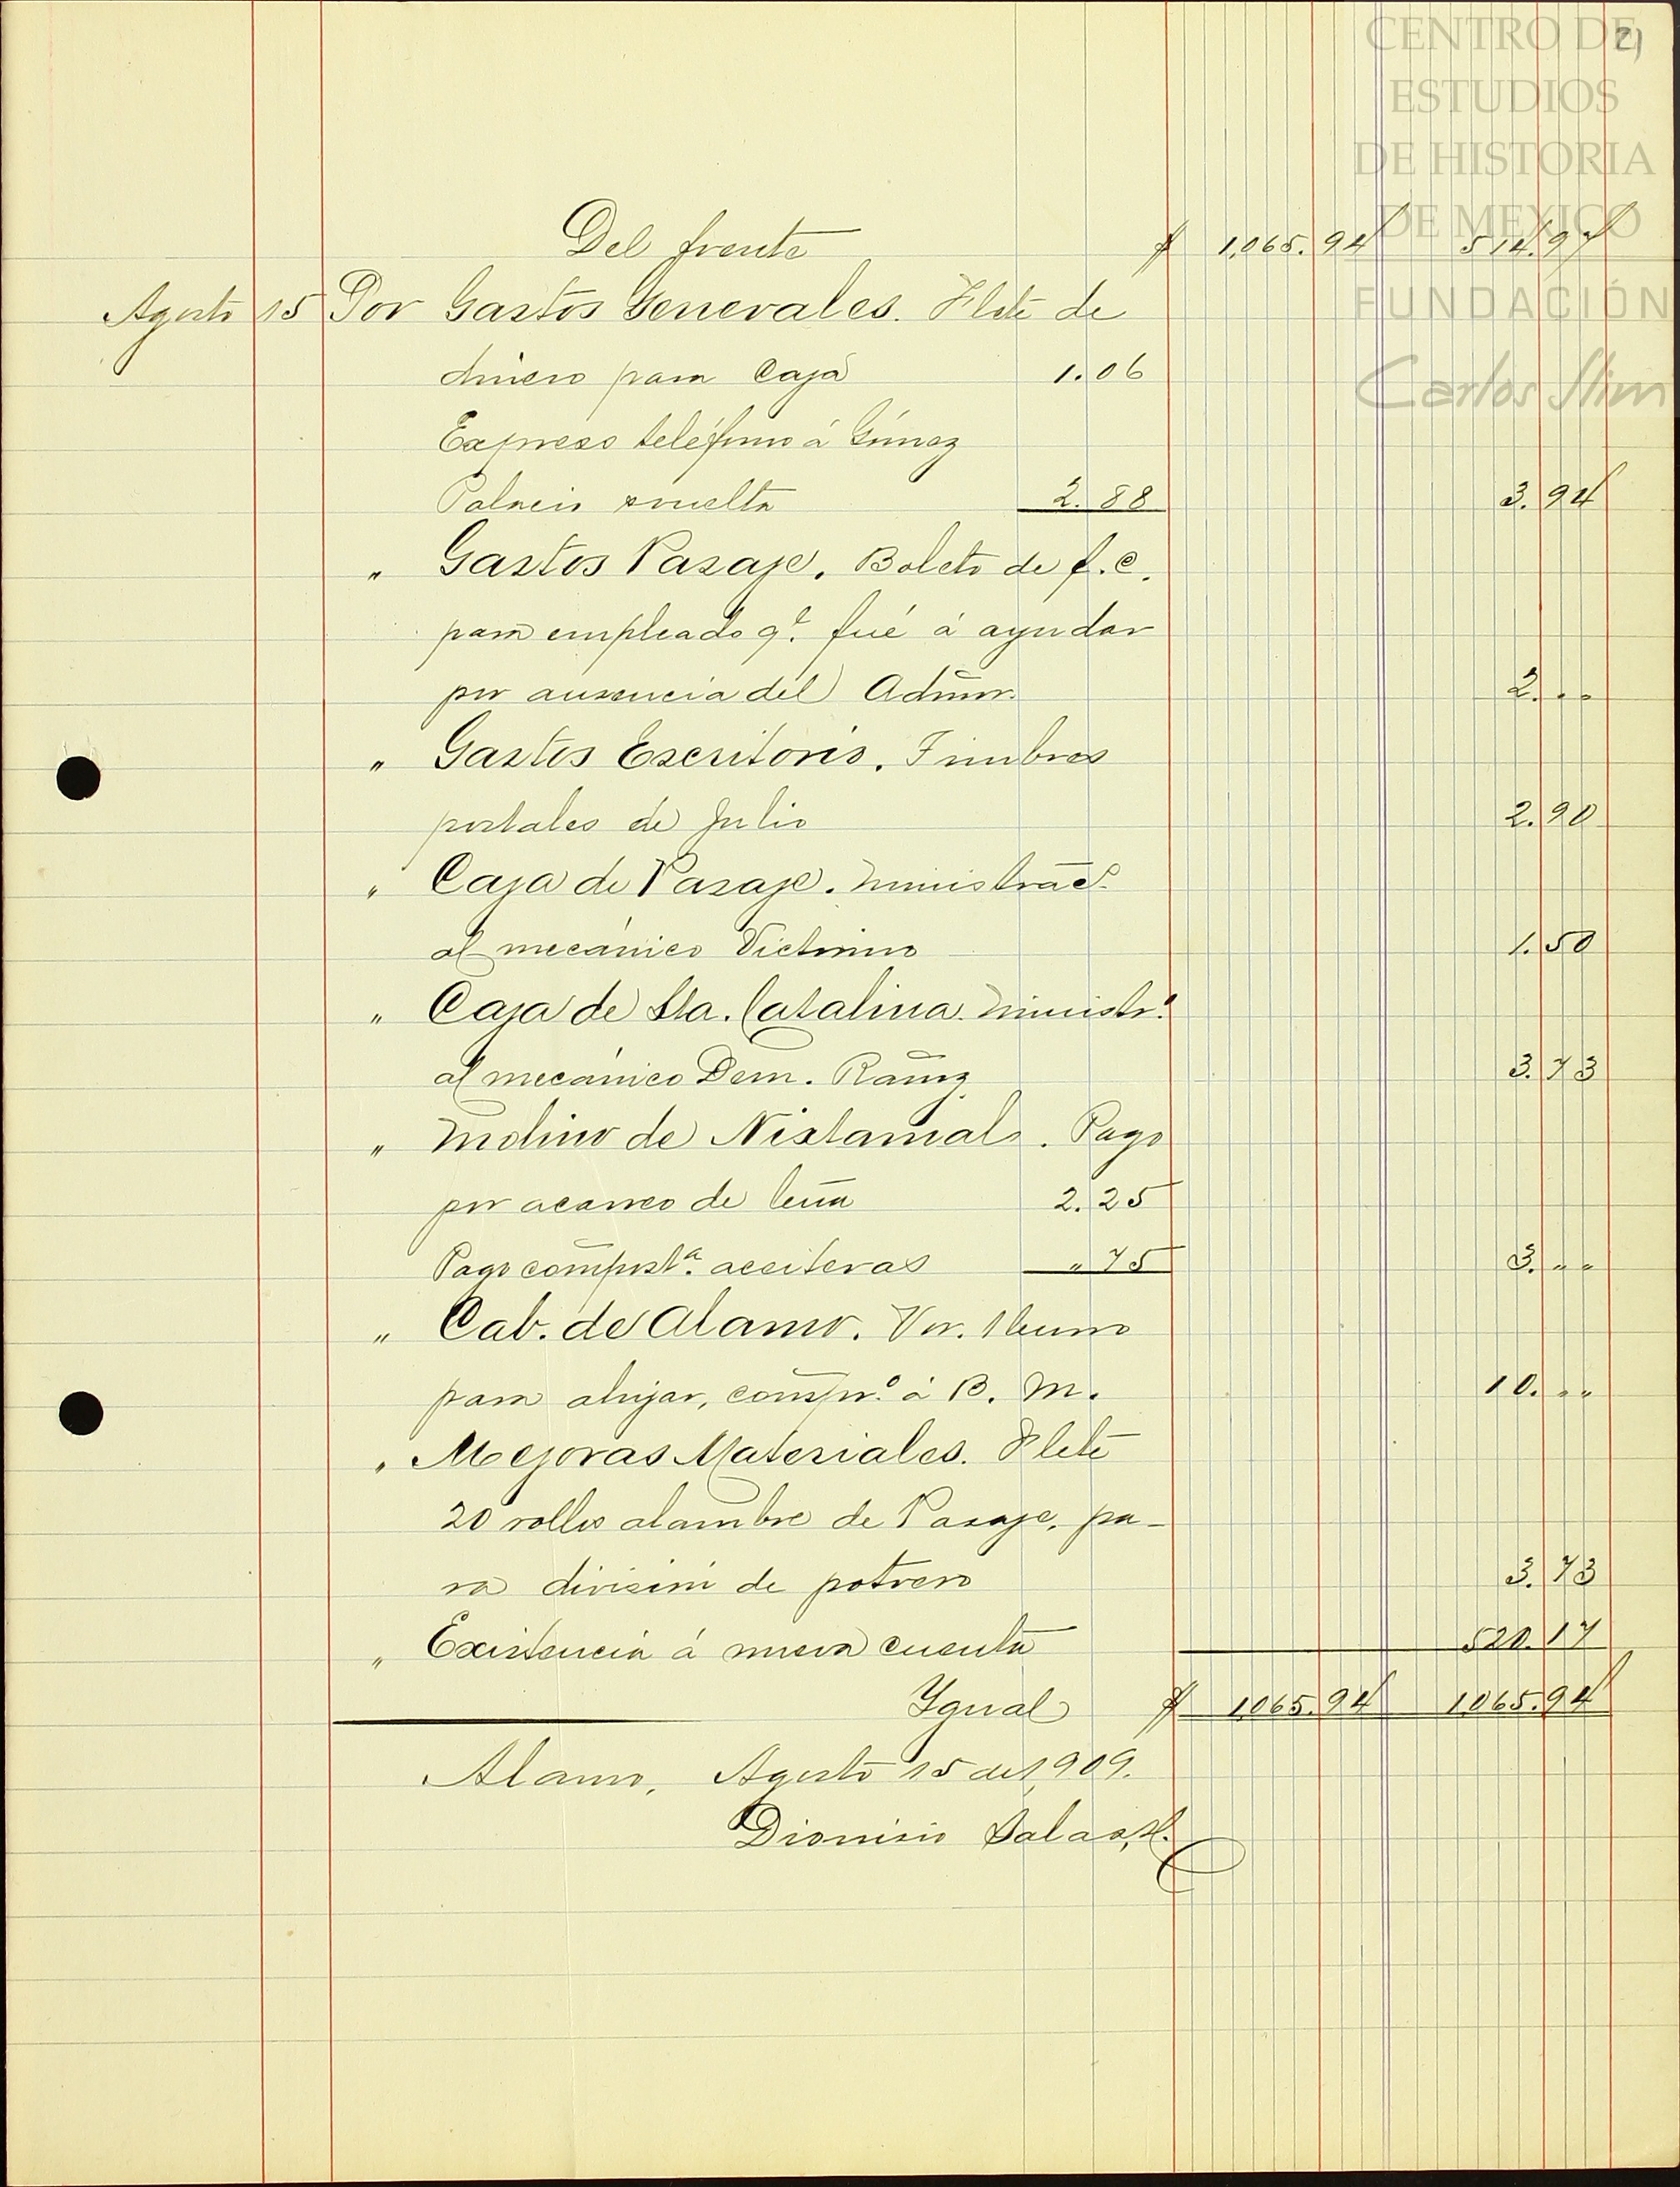 CENTRO DE
ESTUDIOS
DE HISTORIA
DE MEXICO
FUNDACIÓN
Carlos Slim
2)
Del frente $ 1,065.94 514.97
Agosto 15 Por Gastos Generales. Flete de
dinero para Caja 1.06
Expreso teléfono á Gómez
Palacio vuelta 2.88 3.94
" Gastos Pasaje. Boleto de f.c.
para empleado qe. fué á ayudar
por ausencia del Admor. 2. " "
" Gastos Escritorio. Timbres
postales de Julio 2.90
" Caja de Pasaje. Ministrac.
al mecánico Victorino 1.50
" Caja de Sta. Catalina. Ministr.o
al mecánico Dem. Ramz. 3.73
" Molino de Nixtamal. Pago
por acarreo de leña 2.25
Pago compost.a aceiteras " 75 3. " "
" Cab. de Alamo. Vor.
para ahijar, compr.o á B. M. 10. " "
" Mejoras Materiales. Flete
20 rollos alambre de Pasaje, pa-
ra división de potrero 3.73
" Existencia á nueva cuenta 520.17
Ygual $ 1,065.94 1,065.94
Alamo, Agosto 15 de 1909.
Dionisio Salas, H.